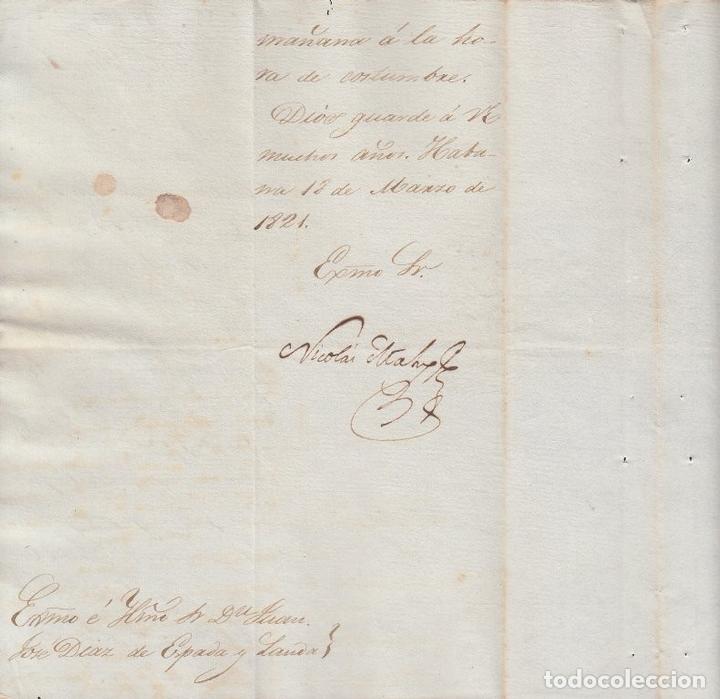 mañana á la ho-
ra de costumbre.
Dios guarde á VE
muchos años. Haba-
na 13 de Marzo de
1821.
Exmo Sr.
Nicolás Mahy
Exmo é Yllmo Sr Dn Juan
José Diaz de Espada y Landa
todocoleccion